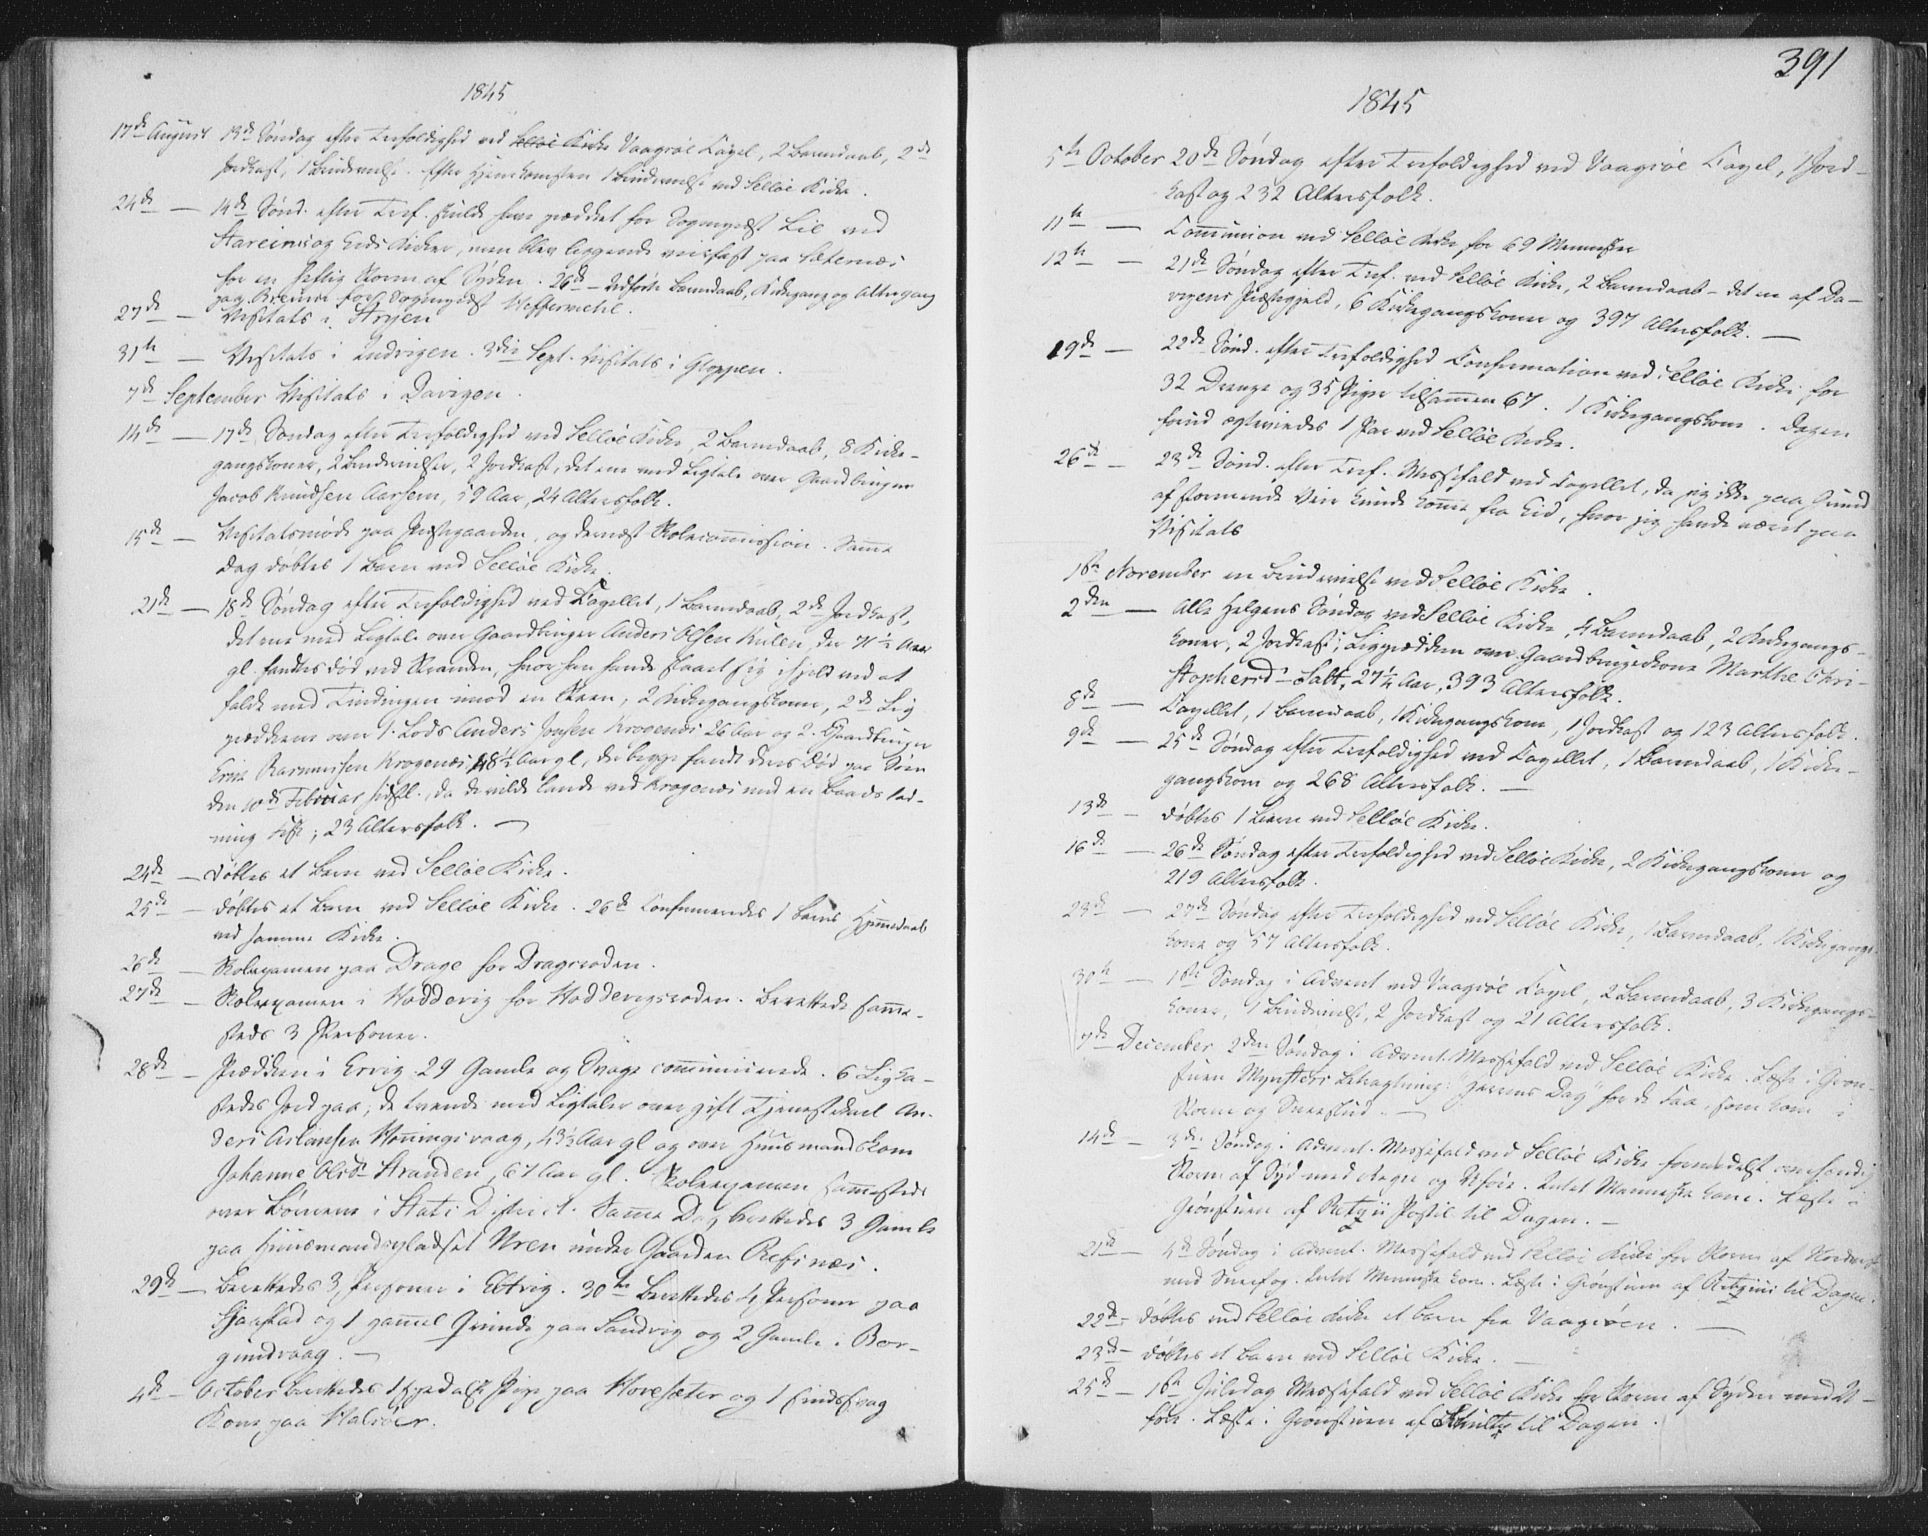 1845
17de August 13de Søndag efter Trefoldighed ved Selløe Kirke Vaagsøe Capel, 2 Barnedaab, 2de
Jordkast, 1 Brudevielse. Efter Hjemkomsten 1 Brudevielse ved Selløe Kirke.
24de — 14de Sønd. efter Tref. skulde have prædiket for Sogneprest Lie ved
Starheims og Eids Kirker, men blev liggende veirfast paa Sæternæs
for en heftig Storm af Syden. 26de – Udførte Barnedaab, Kirkegang og Altergang
paa Bremer for Sogneprest Neffermehl.
27de — Visitats i Stryen
31te — Visitats i Indvigen. 3die Sept. Visitats i Gloppen.
7de September Visitats i Davigen.
14de — 17de Søndag efter Trefoldighed ved Selløe Kirke, 2 Barnedaab, 8 Kirke-
gangskoner, 2 Brudevielser, 2 Jordkast, det ene med Ligtale over Gaardbruger
Jacob Knudsen Aarsem, 59 Aar, 24 Altersfolk.
15de — Visitatsmøde paa Præstegaarden, og dernæst Skolecommission. Samme
Dag døbtes 1 Barn ved Selløe Kirke.
21de — 18de Søndag efter Trefoldighed ved Capellet, 1 Barnedaab, 2de Jordkast,
det ene med Ligtale over Gaardbruger Anders Olsen Kulen, der 71 1/2 Aar
gl. fandtes død ved Stranden, hvor han havde slaaet sig ihjel ved at
falde med Tindingen imod en Steen, 2 Kirkegangskoner, 2de Lig
prædikener over 1. Lods Anders Jonsen Krogenæs 26 Aar og 2. Gaardbruger
Erik Rasmussen Krogenæs 48 1/2 Aar gl., der begge fandt deres Død paa Søen
den 10de Februar sidstl., da de vilde lande ved Krogenæs med en Baads lad-
ning Fisk; 23 Altersfolk. —
24de — døbtes et Barn ved Selløe Kirke.
25de — døbtes et Barn ved Selløe Kirke. 26de Confirmeredes 1 Barns Hjemmedaab
ved samme Kirke.
26de — Skoleexamen paa Drage for Dragseroden.
27de — Skoleexamen i Hoddevig for Hoddevigsroden. Berettede samme-
steds 3 Personer.
28de — Prædiken i Ervig 29 Gamle og Svage communicerede. 6 Lig ka-
stedes Jord paa, de tvende med Ligtaler over gift Tjenestekarl An-
ders Aslaksen Honningsvaag, 43 1/2 Aar gl og over Huusmandskone
Johanne Olsdr Stranden, 67 Aar gl. Skoleexamen sammesteds
over Børnene i Stats District. Samme Dag berettedes 3 Gamle
paa Huusmandspladset Uren under Gaarden Refsnæs.
29de — Berettedes 3 Personer i Eltvig. 30te Berettedes 4 Personer paa
Gjaastad og 1 gammel Qvinde paa Sandvig og 2 Gamle i Bor-
gundvaag. —
4de — October berettedes 1 Pige paa Hovesæter og 1 sindssvag
Kone paa Halsør.
391
1845
5te October 20de Søndag efter Trefoldighed ved Vaagsøe Capel, 1 Jord-
kast og 232 Altersfolk.
11te — Communion ved Selløe Kirke for 69 Mennesker
12te — 21de Søndag efter Tref. ved Selløe Kirke, 2 Barnedaab – det ene af Da-
vigens Præstegjæld, 6 Kirkegangskoner og 397 Altersfolk. —
19de — 22de Sønd. efter Trefoldighed Confirmation ved Selløe Kirke for
32 Drenge og 35 Piger tilsammen 67. 1 Kirkegangskone. Dagen
forud ægteviedes 1 Par ved Selløe Kirke.
26de — 23de Sønd. efter Tref. Messefald ved Capellet, da jeg ikke paa Grund
af stormende Veir kunde komme fra Eid, hvor jeg havde været paa
Visitats
1ste November en Brudevielse ved Selløe Kirke.
2den — Alle Helgens Søndag ved Selløe Kirke, 4 Barnedaab, 2 Kirkegangs-
koner, 2 Jordkast; Ligprædiken over Gaardbrugerkone Marthe Chri-
stophersd- Salt, 27 1/4 Aar, 393 Altersfolk.
8de — Capellet, 1 Barnedaab, 1 Kirkegangskone, 1 Jordkast og 123 Altersfolk.
9de — 25de Søndag efter Trefoldighed ved Capellet, 1 Barnedaab, 1 Kirke-
gangskone og 268 Altersfolk. —
13de — døbtes 1 Barn ved Selløe Kirke.
16de — 26de Søndag efter Trefoldighed ved Selløe Kirke, 2 Kirkegangskoner og
219 Altersfolk.
23de — 27de Søndag efter Trefoldighed ved Selløe Kirke, 1 Barnedaab, 1 Kirkegangs-
kone og 57 Altersfolk.
30te — 1ste Søndag i Advent ved Vaagsøe Capel, 2 Barnedaab, 3 Kirkegangs-
koner, 1 Brudevielse, 2 Jordkast og 21 Altersfolk.
7de December 2den Søndag i Advent. Messefald ved Selløe Kirke. Læste i Grøn-
stuen Mynsters Betragtning: "Herrens Dag" for de Faa, som kom i
Storm og Sneeslud. —
14de — 3die Søndag i Advent. Messefald ved Selløe Kirke formedelst
Storm af Syd med Regn og Uføre. Intet Menneske kom. Læste i
Grønstuen af Retzii Postil til Dagen. —
21de — 4de Søndag i Advent. Messefald ved Selløe Kirke for Storm af Nordvest
med Sneefog. Intet Menneske kom. Læste i Grønstuen af Retzius til Dagen.
22de — døbtes ved Selløe Kirke et Barn fra Vaagsøen. —
23de — døbtes et Barn ved Selløe Kirke. —
25de — 1ste Juledag Messefald ved Selløe Kirke for Storm af Syden med U-
føre. Læste i Grønstuen af Schultz til Dagen.